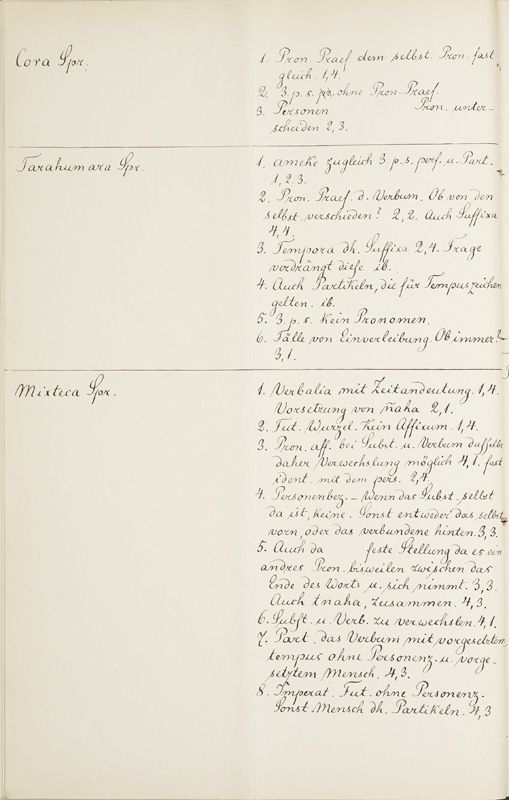 Cora Spr.
1. Pron. Praef dem selbst. Pron. fast
gleich. 1,4.
2. 3. p. s. ohne Pron. Praef.
3. Personen Pron. unter-
scheiden 2, 3.
Tarahumara Spr.
1. ameke zugleich 3 p. s. perf. u. Part.
1, 2. 3.
2. Pron. Praef. d. Verbum. Ob von den
selbst verschieden? 2, 2. Auch Suffixa
4, 4.
3. Tempora dh. Suffixa 2, 4. Frage
verdrängt diese ib.
4. Auch Partikeln, die für Tempuszeichen
gelten. ib.
5. 3 p. s. kein Pronomen.
6. Fälle von Einverleibung. Ob immer?
3, 1.
Mixteca Spr.
1. Verbalia mit Zeitandeutung. 1, 4.
Vorsetzung von ñaha 2, 1.
2. Fut. Wurzel. Kein Affixum. 1, 4.
3. Pron. aff. bei Subst. u. Verbum dasselbe
daher Verwechslung möglich 4, 1. fast
ident. mit dem pers. 2, 4.
4. Personenbez. – Wenn das Subst. selbst
da ist, keine. Sonst entweder das selbst
vorn, oder das verbundene hinten. 3, 3.
5. Auch da feste Stellung da es ein
andres Pron. bisweilen zwischen das
Ende des Worts u. sich nimmt. 3, 3.
Auch tnaha, zusammen. 4, 3.
6. Subst. u. Verb. zu verwechslen. 4, 1.
7. Part. das Verbum mit vorgesetztem
tempus ohne Personenz. u. vorge-
setztem Mensch. 4, 3.
8. Imperat. Fut. ohne Personenz.
Sonst Mensch dh. Partikeln. 4, 3